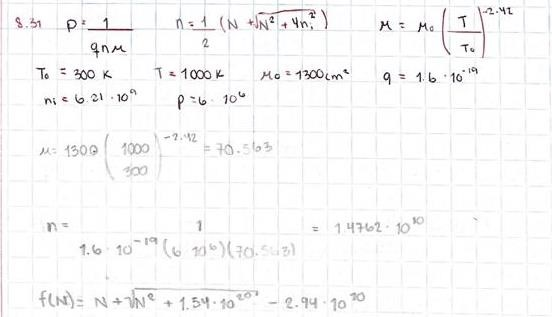 8.31 ρ = 1/(qnμ) n = 1/2 (N + √(N² + 4ni²)) μ = μ₀ (T/T₀)^-2.42
T₀ = 300 K T = 1000 K μ₀ = 1300 cm² q = 1.6 · 10^-19
ni = 6.21 · 10⁹ ρ = 6 · 10⁶
μ = 1300 (1000/300)^-2.42 = 70.563
n = 1/(1.6 · 10^-19 (6 10⁶)(70.563)) = 1.4762 · 10^10
f(N) = N + √(N² + 1.54 · 10^20) - 2.94 · 10^10